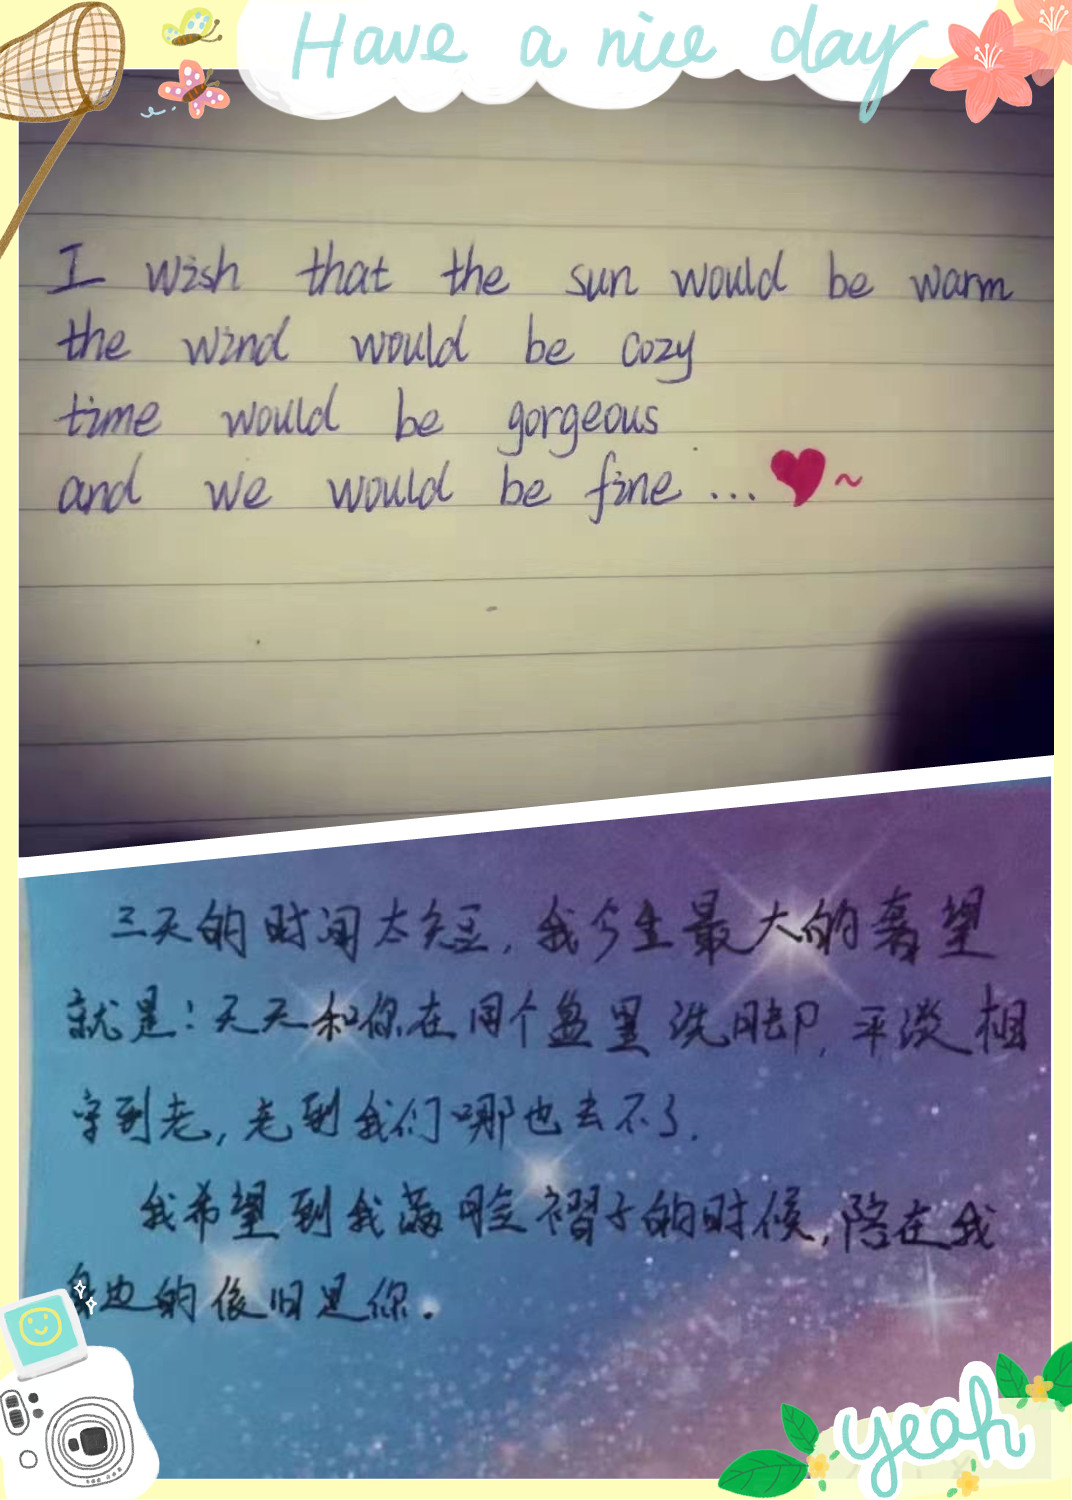 Have a nice day
I wish that the sun would be warm
the wind would be cozy
time would be gorgeous
and we would be fine ...
三天的时间太短,我今生最大的奢望
就是:天天和你在同个盆里洗脚,平淡相
守到老,老到我们哪也去不了.
我希望到我满脸褶子的时候,陪在我
身边的依旧是你。
yeah